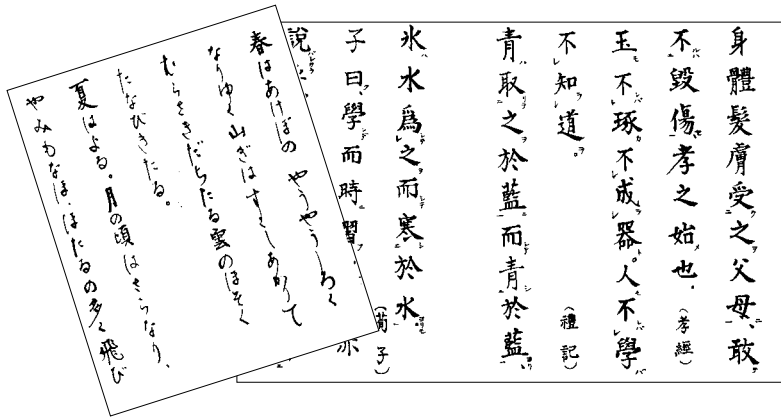 身體髮膚受之父母、敢
不毀傷孝之始也。（孝經）
玉不琢不成器。人不學
不知道。（禮記）
青取之於藍而青於藍、
氷水爲之而寒於水。（荀子）
子曰、學而時習
說
春はあけぼの やうやうしろく
なりゆく山ぎはすこしあかりて
むらさきだちたる雲のほそく
たなびきたる。
夏はよる。月の頃はさらなり、
やみもなほ、ほたるの多く飛び